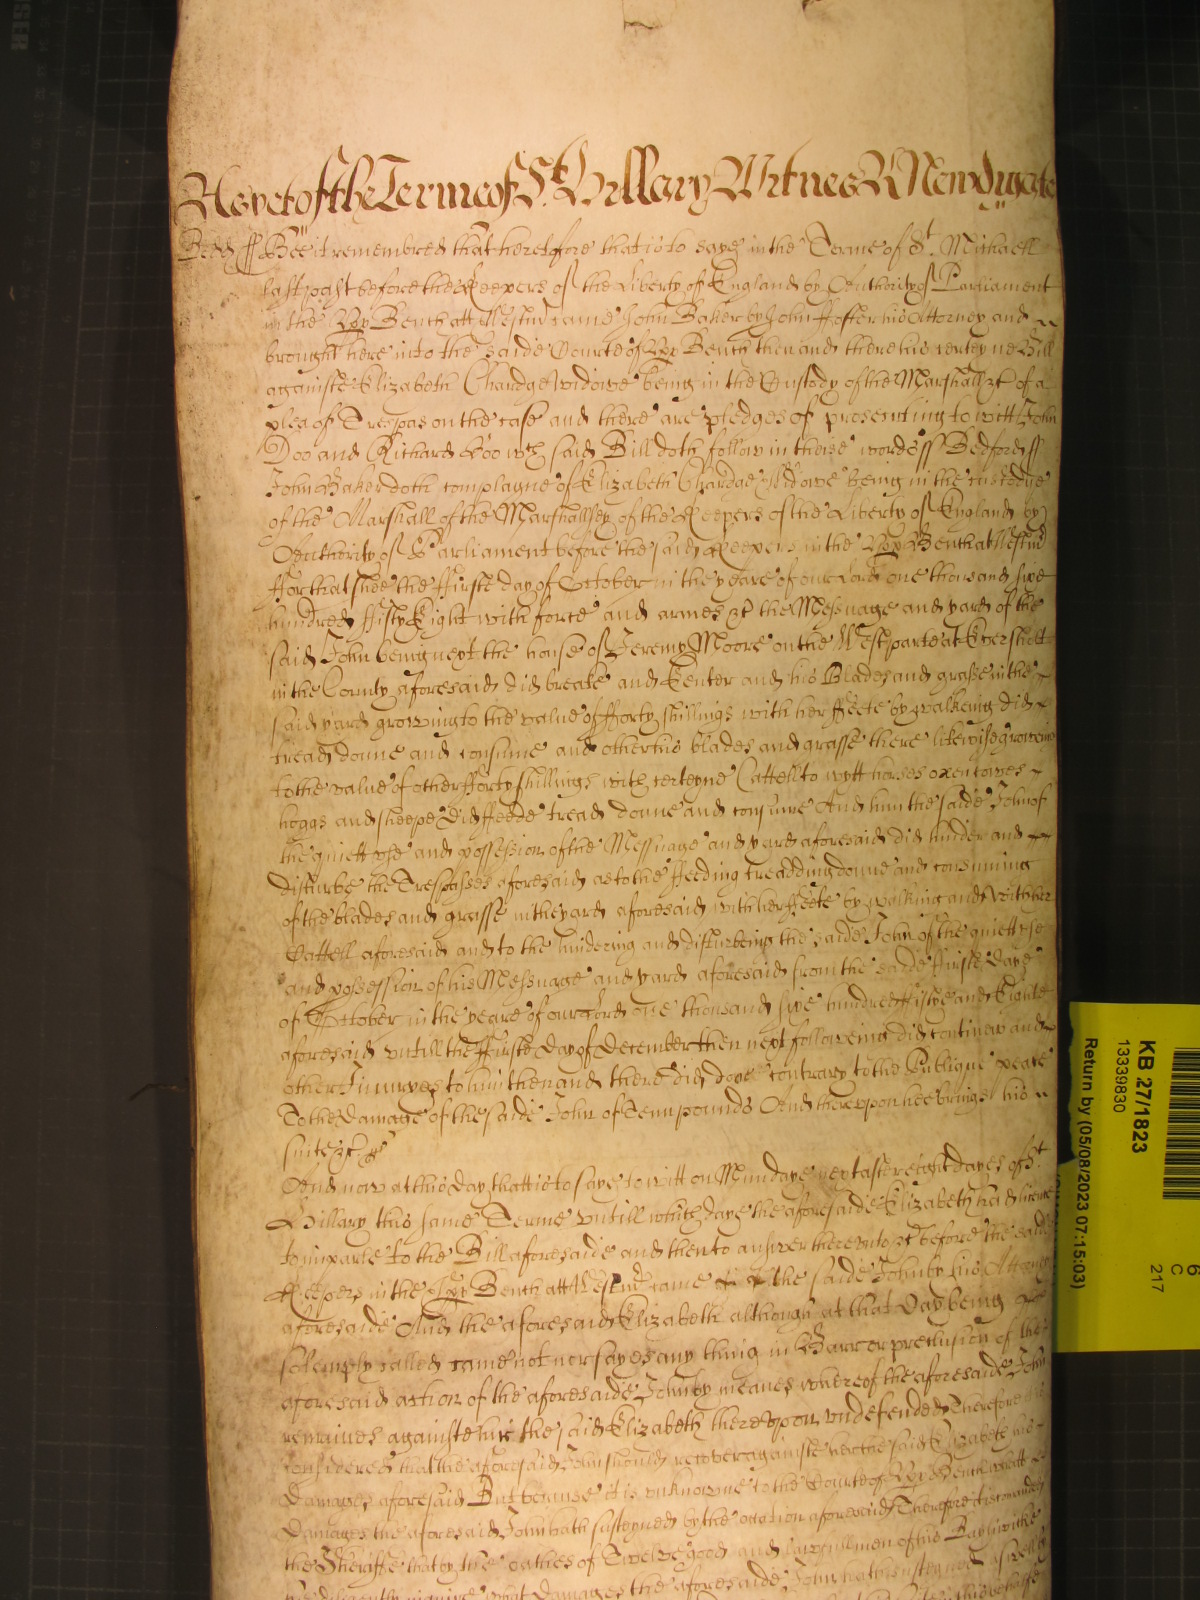 As yet of the Terme of St. Hillary Witnes R Newdigate
Bedd ss Bee it remembred that heretofore that is to saye in the Terme of St. Michaell
last past before the Keepers of the Liberty of England by Authority of Parliament
in the Upp Bench att Westmr came John Baker by John Foster his Attorney and
brought here into the saide Courte of Upp Bench then and there his certeyne Bill
againste Elizabeth Chardge widowe being in the Custody of the Marshall &c of a
plea of Trespas on the case and there are pledges of prosecuting to witt John
Doo and Richard Roo wch said Bill doth follow in theise wordes ss Bedford ss
John Baker doth complayne of Elizabeth Chardge Widowe being in the custodye
of the Marshall of the Marshallsey of the Keepers of the Liberty of England by
Authority of Parliament before the said Keepers in the Upp Bench at Westmr
ffor that shee the ffirste day of October in the yeare of our Lord one thousand sixe
hundred ffifty Eight with force and armes &c the Messuage and yard of the
said John being next the house of Jeremy Moore on the West parte at Eversholt
in the County aforesaid did breake and Enter and his Blades and grasse in the
said yard growing to the value of fforty shillings with her ffeete by walkeing did
tread downe and consume and other his blades and grasse there likewise groweing
to the value of other fforty shillings with certeyne Cattell to wytt horses oxen cowes
hoggs and sheepe did ffeede tread downe and consume And him the saide John of
the quiett use and possession of the Messuage and yard aforesaid did hinder and
disturbe the Trespasses aforesaid as to the ffeeding treadding downe and consuming
of the blades and grasse in the yard aforesaid with her ffeete by walking and with her
Cattell aforesaid and to the hindering and disturbeing the saide John of the quiett use
and possession of his Messuage and yard aforesaid from the saide ffirste daye
of October in the yeare of our Lord one thousand sixe hundred ffiftye and Eighte
aforesaid untill the ffirste day of December then next followeing did continew and
other Iniuryes to him then and there did doe contrary to the Publique peace
To the damage of the saide John of Tenn pounds And thereupon hee brings his
suite &c
And now at this day that is to saye to witt on Munday next after eight dayes of St.
Hillary this same Terme untill which daye the aforesaide Elizabeth had licence
to imparle to the Bill aforesaide and then to answer thereunto &c before the said
Keepers in the Upp Bench att Westmr came the saide John by his Attorney
aforesaide And the aforesaid Elizabeth although at that Day being
solempnly called came not nor sayes any thing in Barr or preclusion of the
aforesaid action of the aforesaide John by meanes whereof the aforesaide John
remaines againste her the said Elizabeth thereupon undefended Therefore it is
considered that the aforesaid John should recover againste her the said Elizabeth his
Damages aforesaid But because it is unknowne to the Courte of Upp Bench what
Damages the aforesaid John hath susteyned by the occasion aforesaid Therefore it is comanded
the Sheriffe that by the oathes of Twelve good and lawfull men of his Baylywicke
hee diligently inquire what Damages the aforesaide John hath susteyned aswell by
KB 27/1823
13339830
Return by (05/08/2023 07:15:03)
C
217